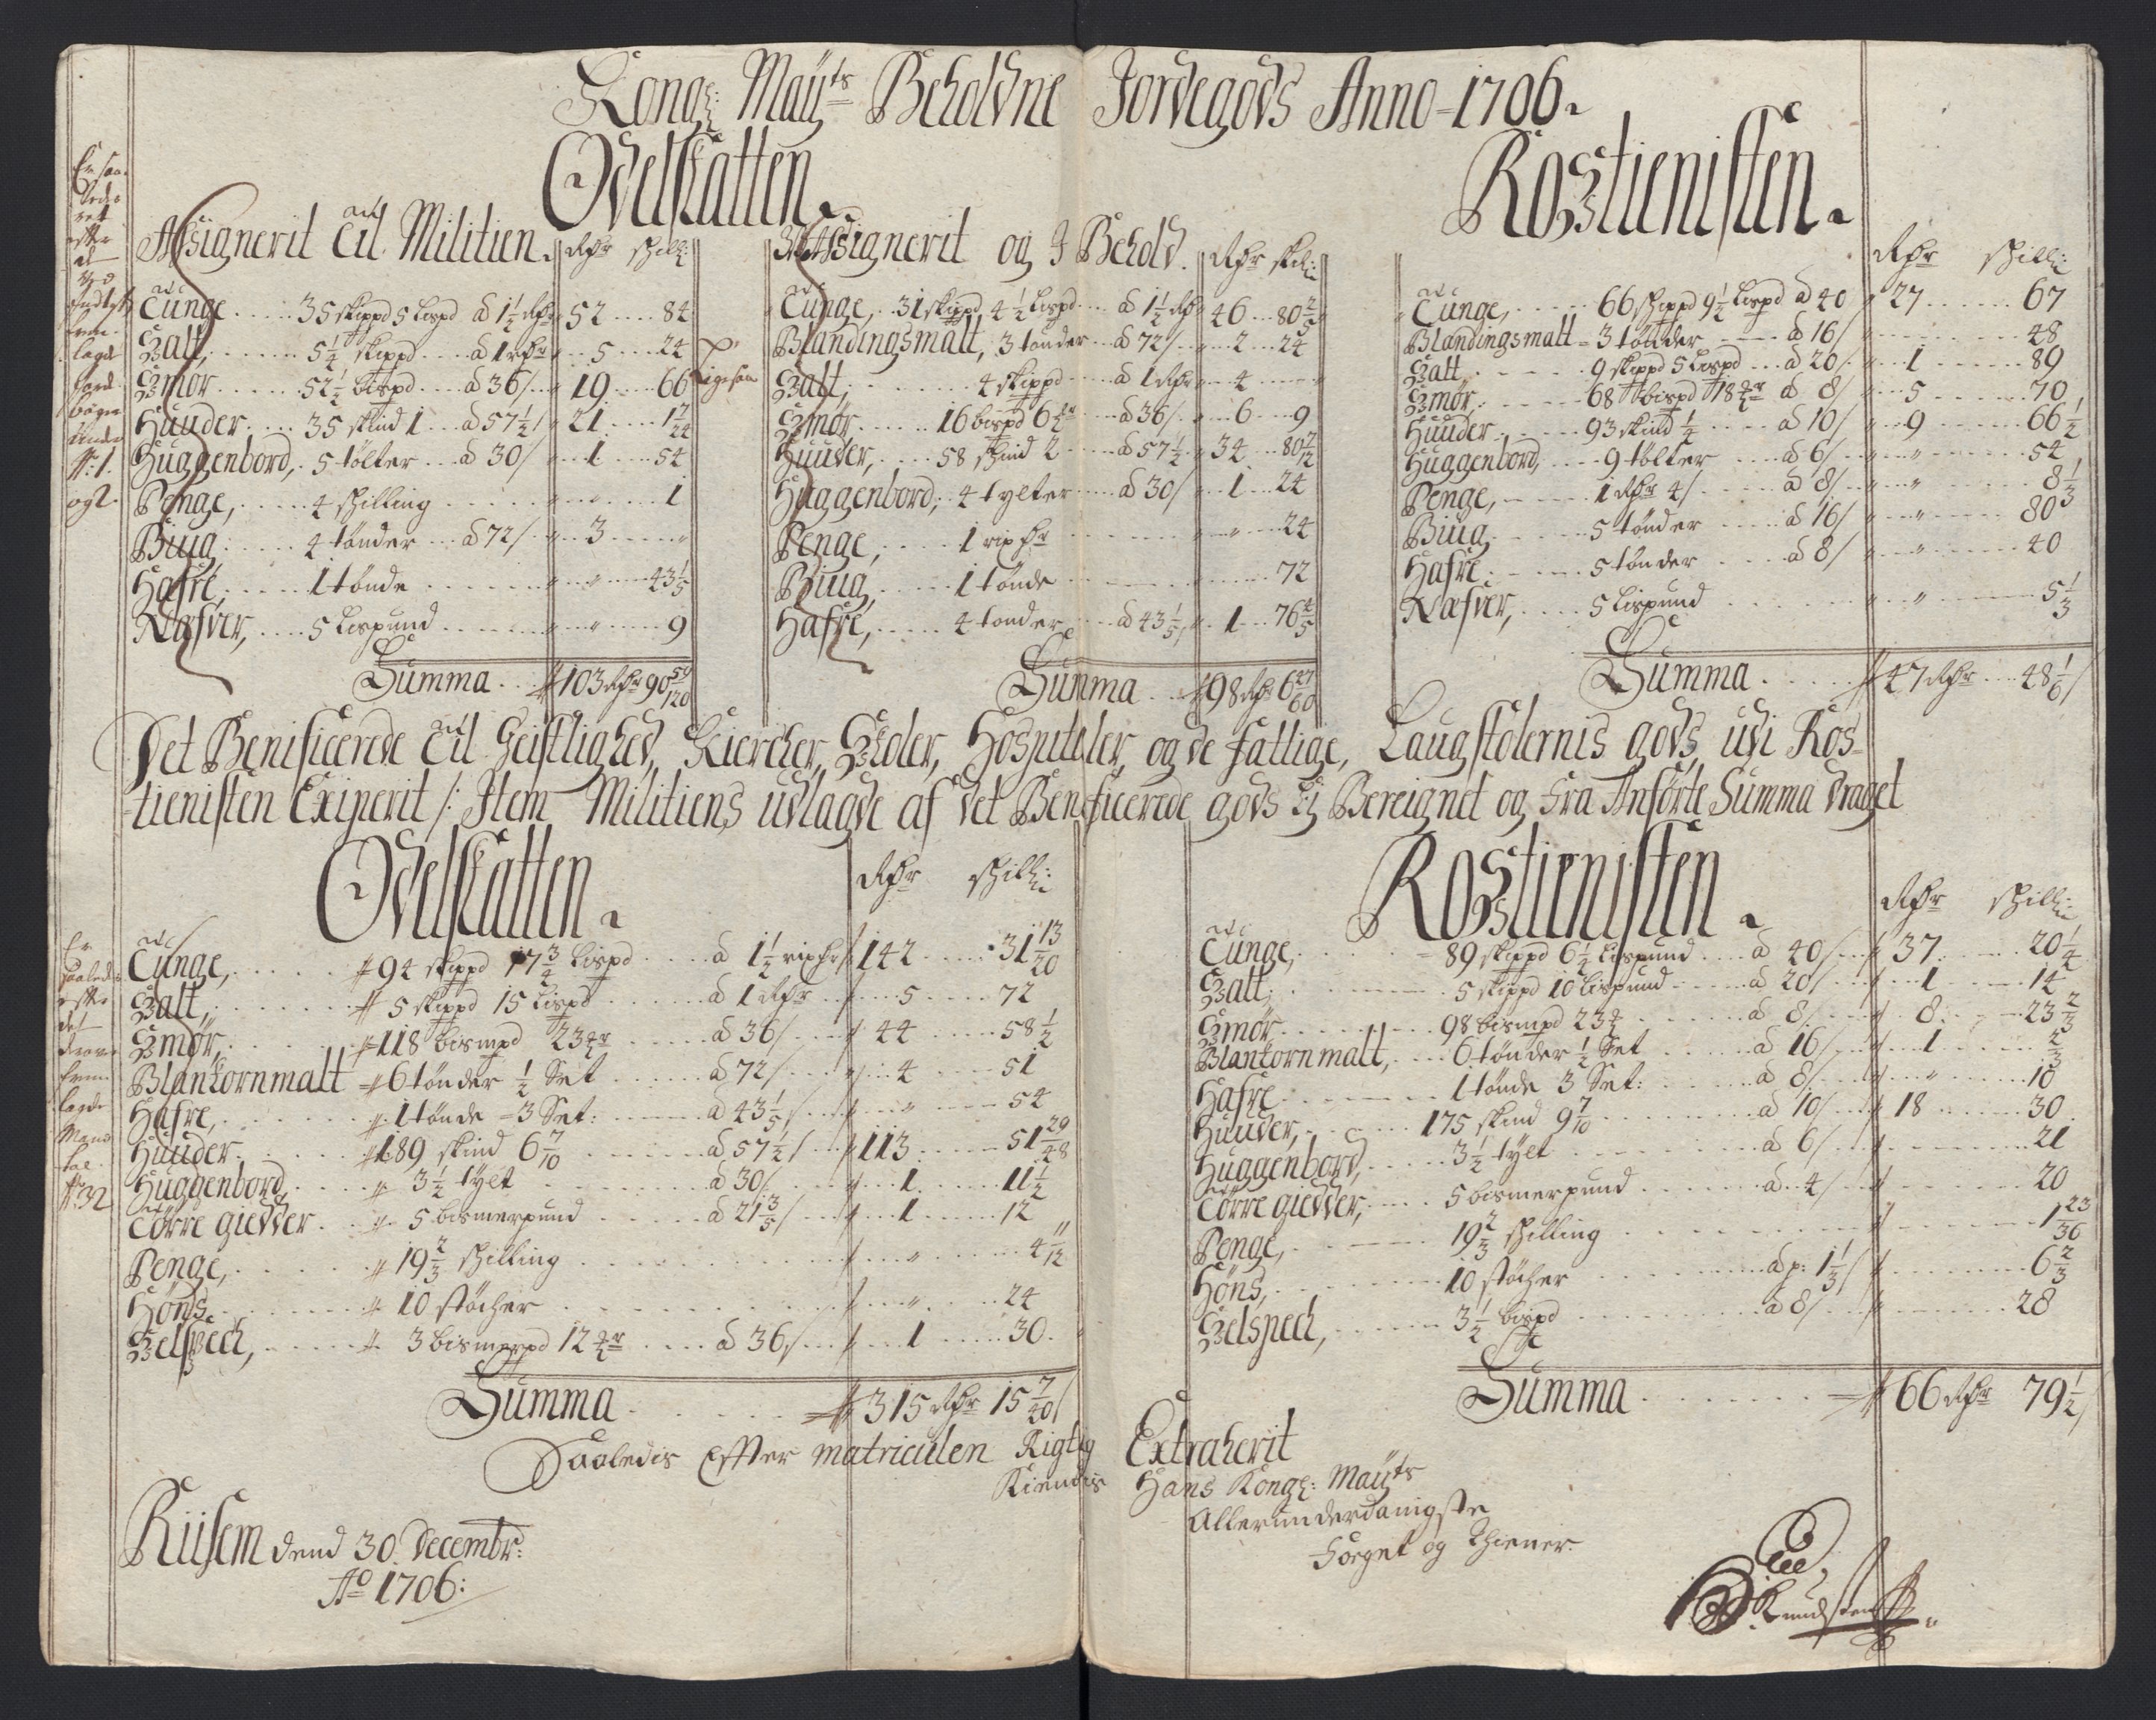 Kongl: Maÿts Beholdne Jordegods Anno 1706.
Odelskatten.
Assignerit til Militien. Rdr skill:
Tunge 35 skippd 5 Lispd a 1½ Rdr 52 84
Salt, 5¼ skippd a 1 Rdr 5 24
Smør 52½ bispd a 36/ 19 66
Huuder 35 skind 1 a 57½/ 21 1 7/24
Huggenbord, 5 tølter a 30/ 1 54
Penge, 4 skilling 1
Biug 4 tønder a 72/ 3
Hafre, 1 tønde 43 1/5
Næfver, 5 Lispund 9
Summa 103 Rdr 90 59/120
Assignerit og J Behold. Rdr skil:
Tunge, 31 skippd 4½ Lispd a 1½ Rdr 46 80 2/5
Blandingsmalt, 3 tønder a 72/ 2 24
Salt, 4 skippd a 1 Rdr 4
Smør 16 bispd 6 mr a 36/ 6 9
Huuder, 58 skind 2 a 57½ 34 80 7/12
Huggenbord, 4 tylter a 30/ 1 24
Penge, 1 rixdr 24
Biug, 1 tønde 72
Hafre, 4 tønder a 43 1/5 1 76 4/5
Summa 98 Rdr 6 47/60
Rostienisten.
Rdr skill:
Tunge, 66 skippd 9½ Lispd a 40 27 67
Blandingsmalt 3 tønder a 16/ 48
Salt 9 skippd 5 Lispd a 20/ 1 89
Smør 68 bispd 18 mr a 8/ 5 70
Huuder 93 skind ¼ a 10/ 9 66½
Huggenbord, 9 tolter a 6/ 54
Penge, 1 Rdr 4/ a 8/ 8 1/3
Biug 5 tønder a 16/ 80
Hafre 5 tønder a 8/ 40
Næfver, 5 Lispund 5 1/3
Summa 47 Rdr 48 1/6/
Det Benificerede til Geistlighed, Kiercker, Skoler, Hospitaler, og de fattige, Laugstolernis gods udi Ros-
tienisten Exiperit /: Item Militiens udlagde af det Beneficerede gods :/ Bereignet og Fra Anførte Summa draget
Odelskatten.
Rdr skill:
Tunge, 94 skippd 17¾ Lispd a 1½ rixdr 142 31 13/20
Salt, 5 skippd 15 Lispd a 1 Rdr 5 72
Smør, 118 bismpd 23 mr a 36/ 44 58½
Blankornmalt 6 tønder ½ Set a 72/ 4 51
Hafre, 1 tønde 3 Set: a 43 1/5/ 54
Huuder 189 skind 6 7/10 a 57½/ 113 51 29/48
Huggenbord 3½ tylt a 30/ 1 11½
Tørre giedder 5 bismerpund a 21 3/5/ 1 12
Penge, 19 2/3 skilling 4 11/12
Høns 10 støcher 24
Selspech, 3 bismerpd 12 mr a 36/ 1 30
Summa 315 Rdr 15 7/40/
Rostienisten.
Rdr skill:
Tunge, 89 skippd 6½ Lispund a 40/ 37 20¼
Salt, 5 skippd 10 Lispund a 20/ 1 14
Smør 98 bismpd 23 mr a 8/ 8 23 2/3
Blankornmalt, 6 tønder ½ Set a 16/ 1 2/3
Hafre 1 tønde 3 Set: a 8/ 10
Huuder, 175 skind 9 7/10 a 10/ 18 30
Huggenbord, 3½ tylt a 6/ 21
Tørre giedder, 5 bismerpund a 4/ 20
Penge, 19 2/3 skilling 1 23/36
Høns, 10 støcher a p: 1 1/3/ 6 2/3
Selspech, 3½ bispd a 8/ 28
Summa 66 Rdr 79½/
Saaledis Efter matriculen Rigtig
Kiendis
Extraherit
Hans Kongl: Maÿts
Allerunderdanigste
Forgnt og Thiener
Riisem dend 30 Decembr:
Ao 1706:
Knudsten